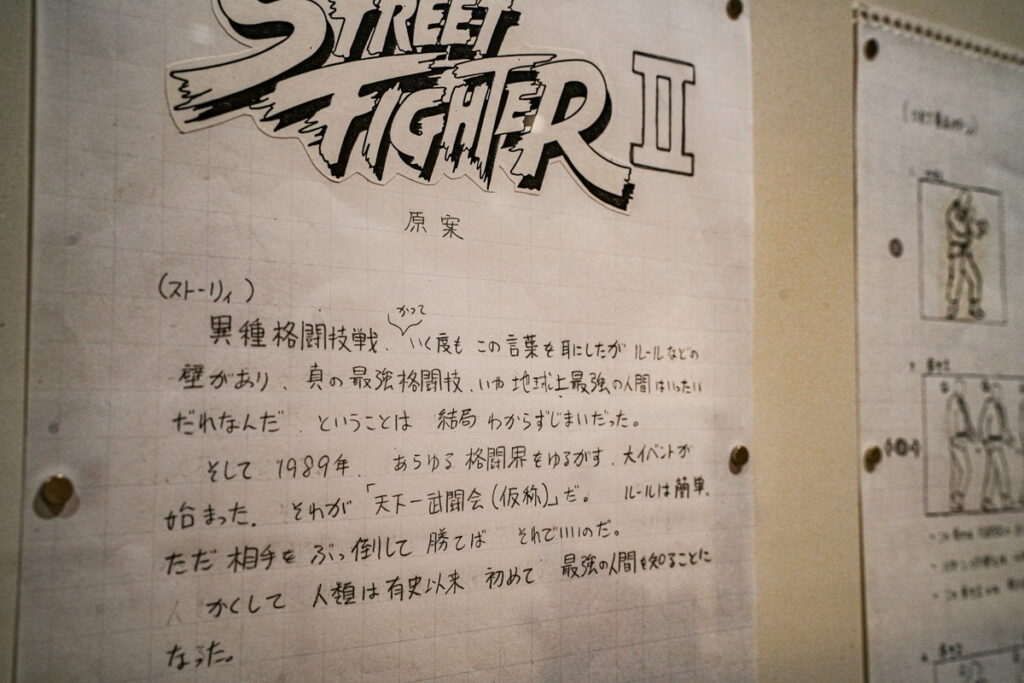 STREET
FIGHTER II
原案
(ストーリィ)
かつて
異種格闘技戦、いく度も この言葉を耳にしたが ルールなどの
壁があり、真の最強格闘技、いや 地球上最強の人間はいったい
だれなんだ、ということは 結局 わからずじまいだった。
そして 1989年、あらゆる 格闘界をゆるがす、大イベントが
始まった。それが「天下一武闘会(仮称)」だ。ルールは簡単、
ただ 相手を ぶっ倒して 勝てば それでいいのだ。
かくして 人類は有史以来 初めて 最強の人間を知ることに
なった。